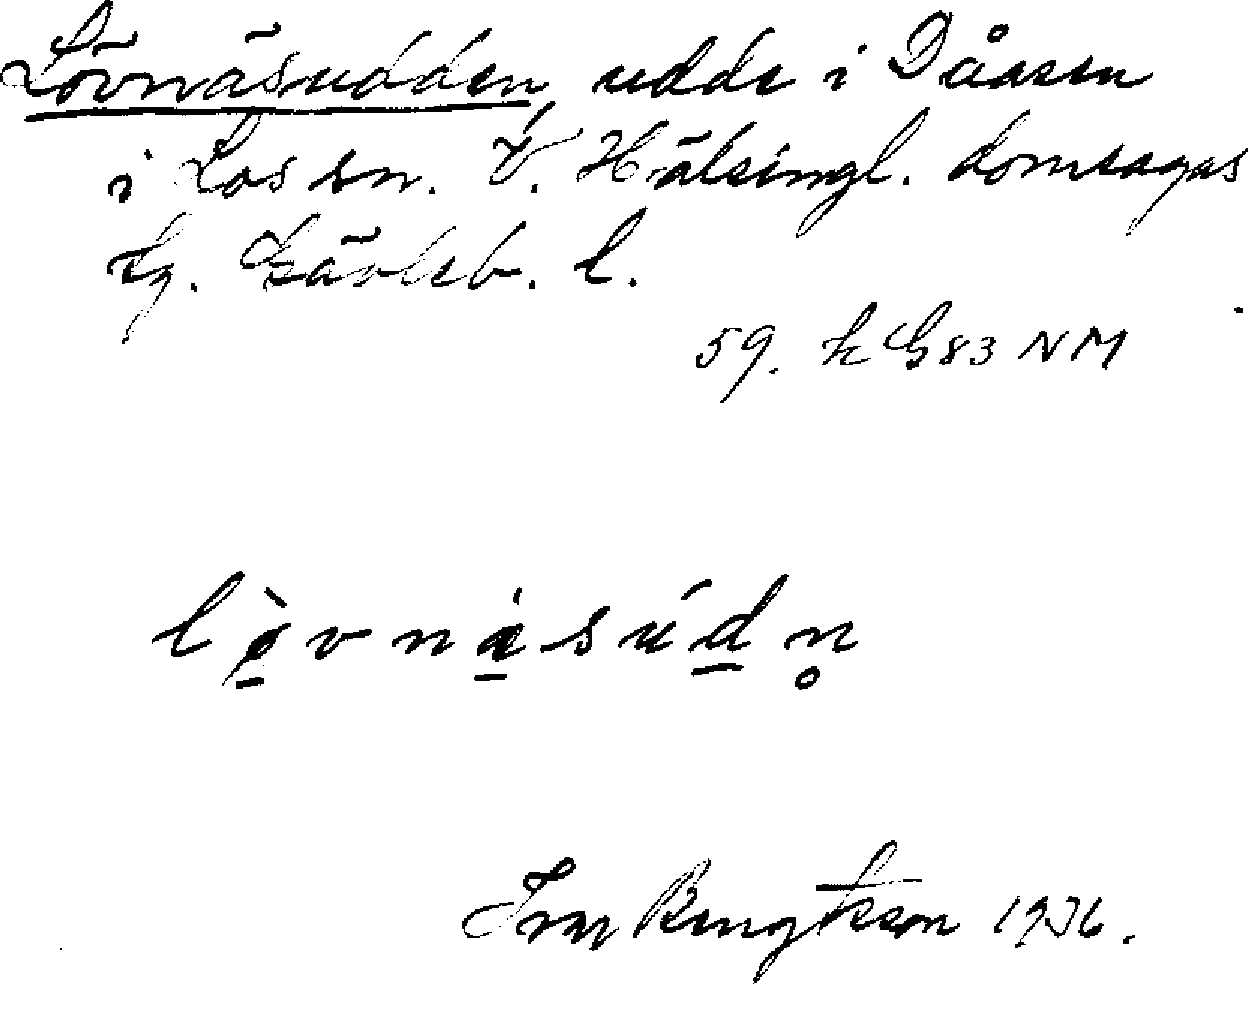 Lövnäsudden, udde i Dåasen
i Los sn. V. Hälsingl. domsagas
tg. Gävleb. l.
59. k G83 NM
lövnäsúdn̥
Ivar Bengtsson 1936.